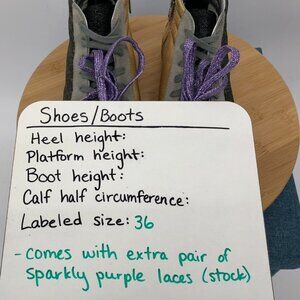 Shoes/Boots
Heel height:
Platform height:
Boot height:
Calf half circumference:
Labeled size: 36
- comes with extra pair of
sparkly purple laces (stock)